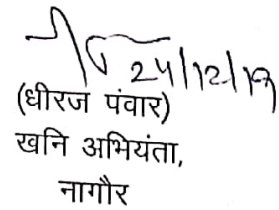 24/12/19
(धीरज पंवार)
खनि अभियंता,
नागौर